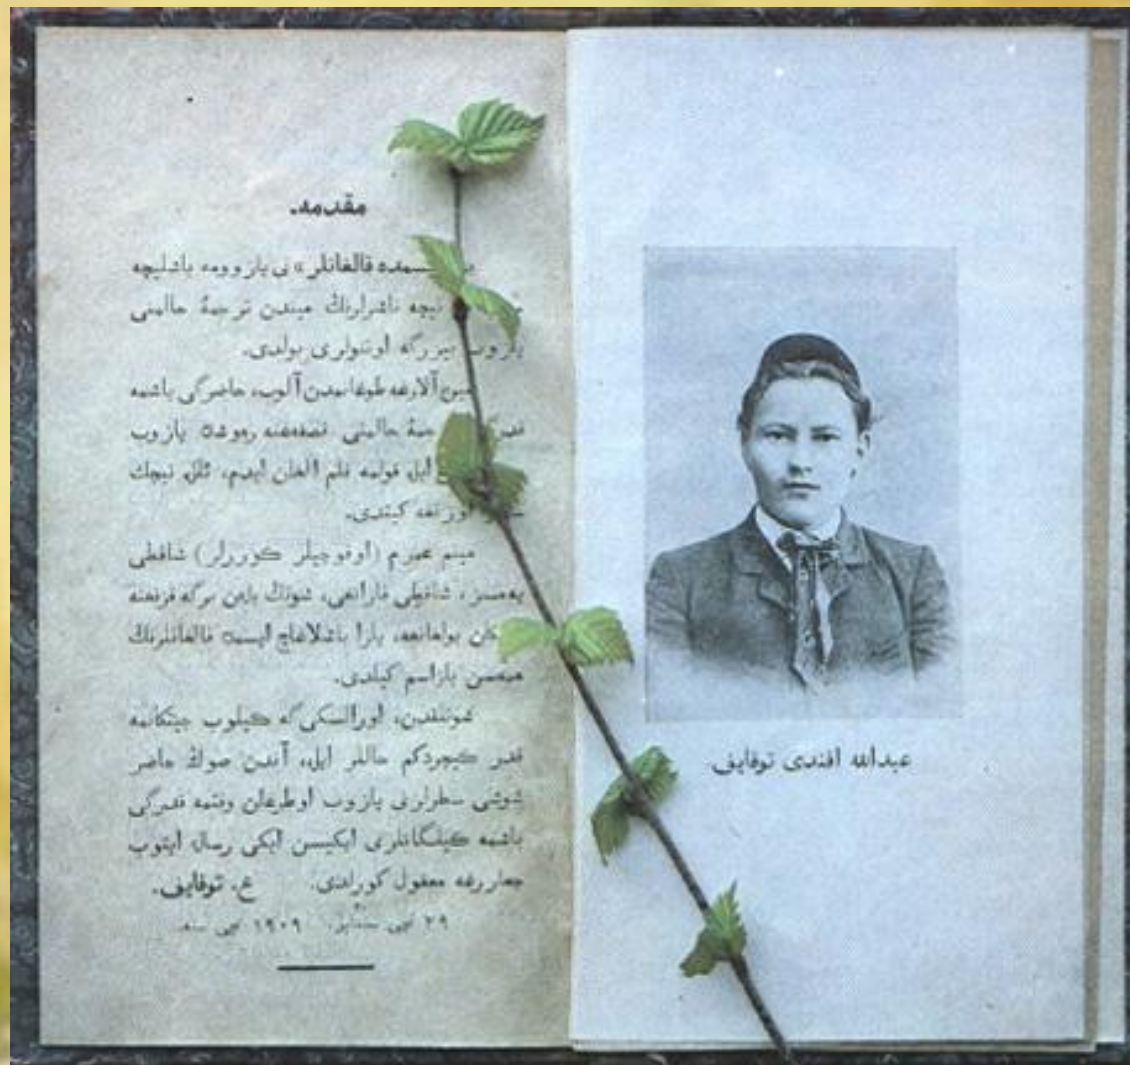 مقدمه.
قالغانلر» نی یازوومه باشلیچه
نیچه ناشرلرنڭ میندن ترجمهٔ حالمنی
یازوب بیررگه اوتنولری بولدی.
آلارغه طوغانمدن آلوب، حاضرگی باشمه
حالمنی یازوب
قولمه قلم آلغان ایدم، نیچك
کیتدی.
مینم عمرم (اوقوچیلر کوررلر) شاقطی
شاقطی قارانغی، شونڭ بلهن برگه
بولغانغه، یازا باشلاغاچ ایسمده قالغانلرنڭ
همهسن یازاسم کیلدی.
شوننقدن، اورالسکی گه کیلوب جیتکانمه
قدر کیچردکم حاللر ایله، آندن صوڭ حاضر
شوشی سطرلرنی یازوب اوطرغان وقتمه قدرگی
باشمه کیلگانلری ایکیسن ایکی رساله ایتوب
چغاررغه معقول کورلدی. ع. توقایف.
٢٩ نچی سنتابر. ١٩٠٩ نچی سنه.
عبدالله افندی توقایف